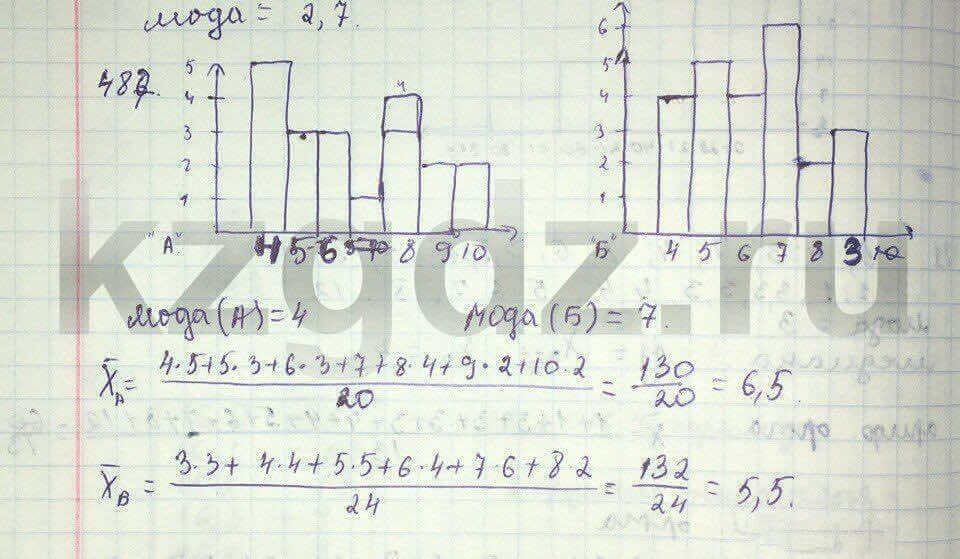 мода = 2,7.
482.
5
4
3
2
1
"А"
4 5 6 7 8 9 10
4
6
5
4
3
2
1
"Б"
4 5 6 7 8 3 10
kzgdz.ru
мода (А) = 4
мода (Б) = 7.
X̄A = 4·5+5·3+6·3+7+8·4+9·2+10·2 / 20 = 130/20 = 6,5.
X̄B = 3·3+4·4+5·5+6·4+7·6+8·2 / 24 = 132/24 = 5,5.